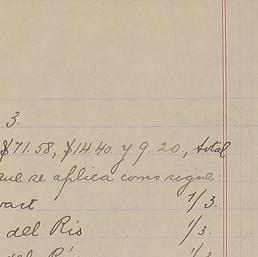 3.
$71.58, $14.40 y 9.20, total
que se aplica como sigue:
wart 1/3.
del Río 1/3.
del Rí 1/3